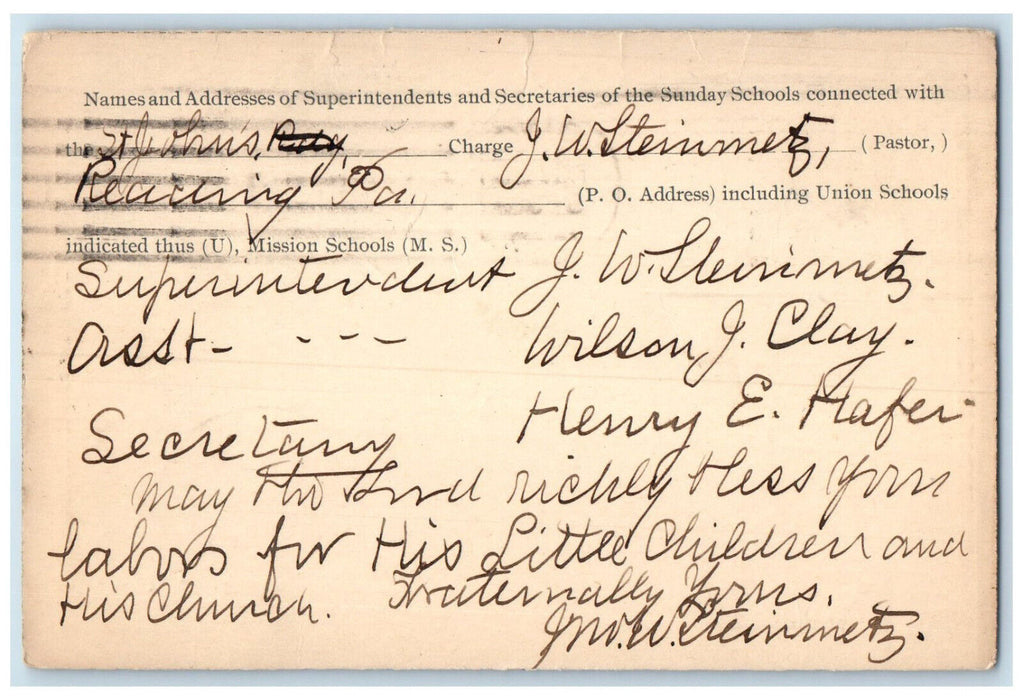 Names and Addresses of Superintendents and Secretaries of the Sunday Schools connected with
the St John's, Rdg, Charge J. W. Steinmetz, ( Pastor, )
Reading Pa. (P. O. Address) including Union Schools
indicated thus (U), Mission Schools (M. S.)
Superintendent J. W. Steinmetz.
Asst- - - - Wilson J. Clay.
Secretary Henry E. Hafer
May the Lord richly bless your
labors for His Little Children and
His Church. Fraternally Yours,
Jno. W. Steinmetz.